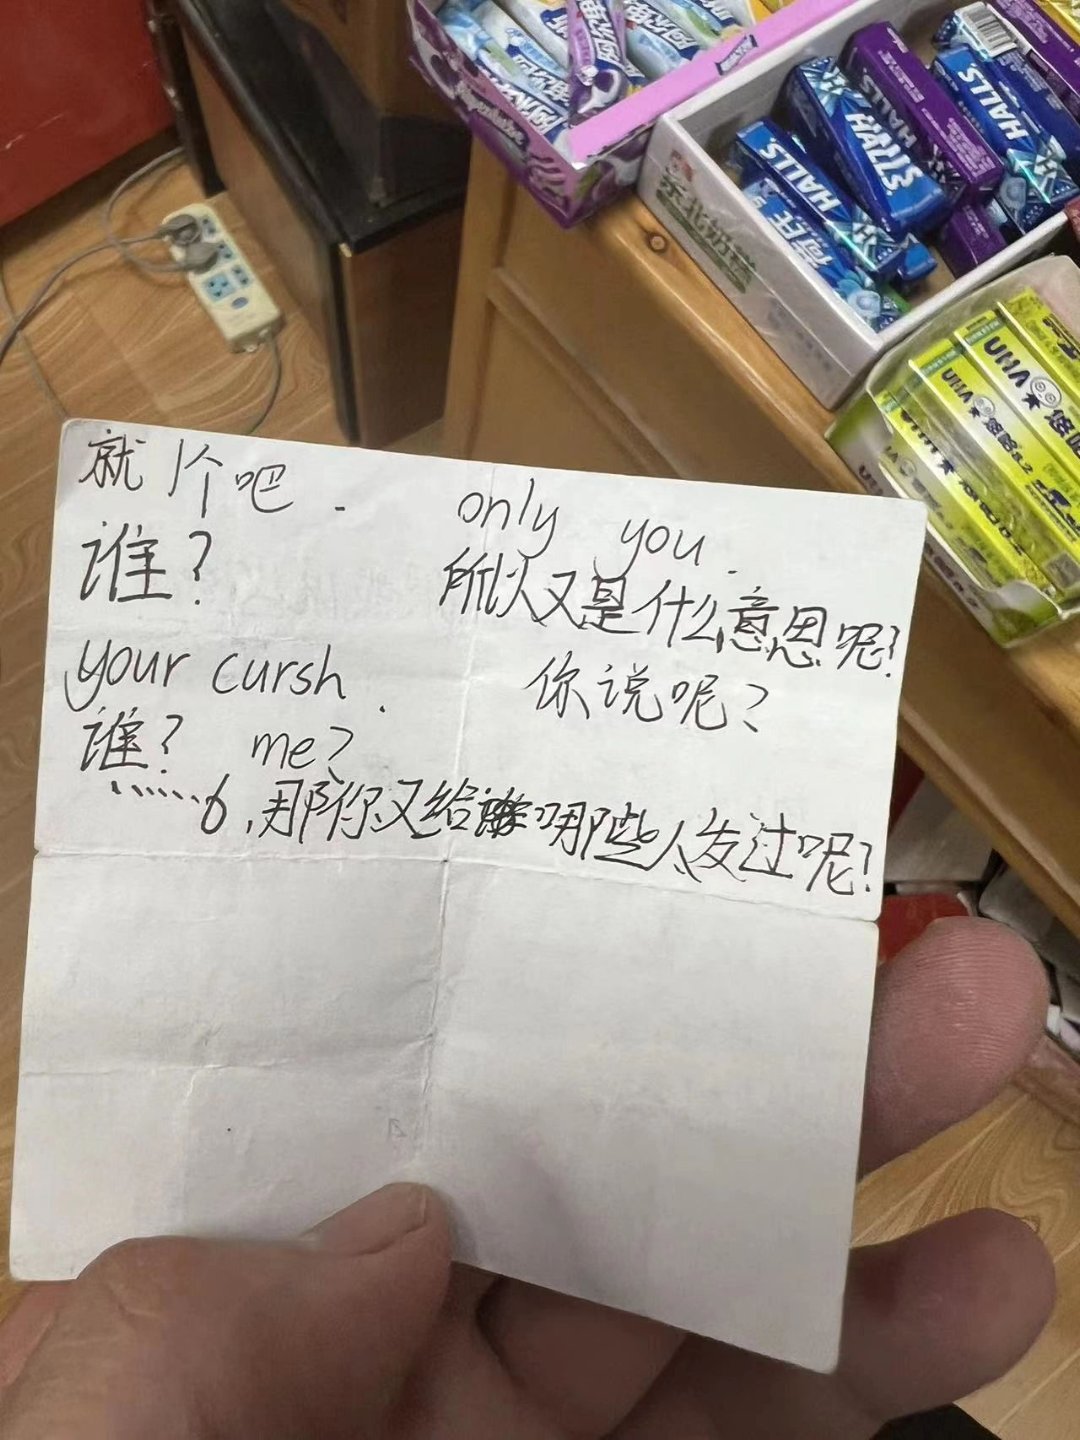 就1个吧.
谁?
your cursh.
谁? me?
......6,那你又给哪些人发过呢?
only you.
所以又是什么意思呢?
你说呢?
HALLS
HALLS
HALLS
HALLS
东北奶糕
UHA
UHA